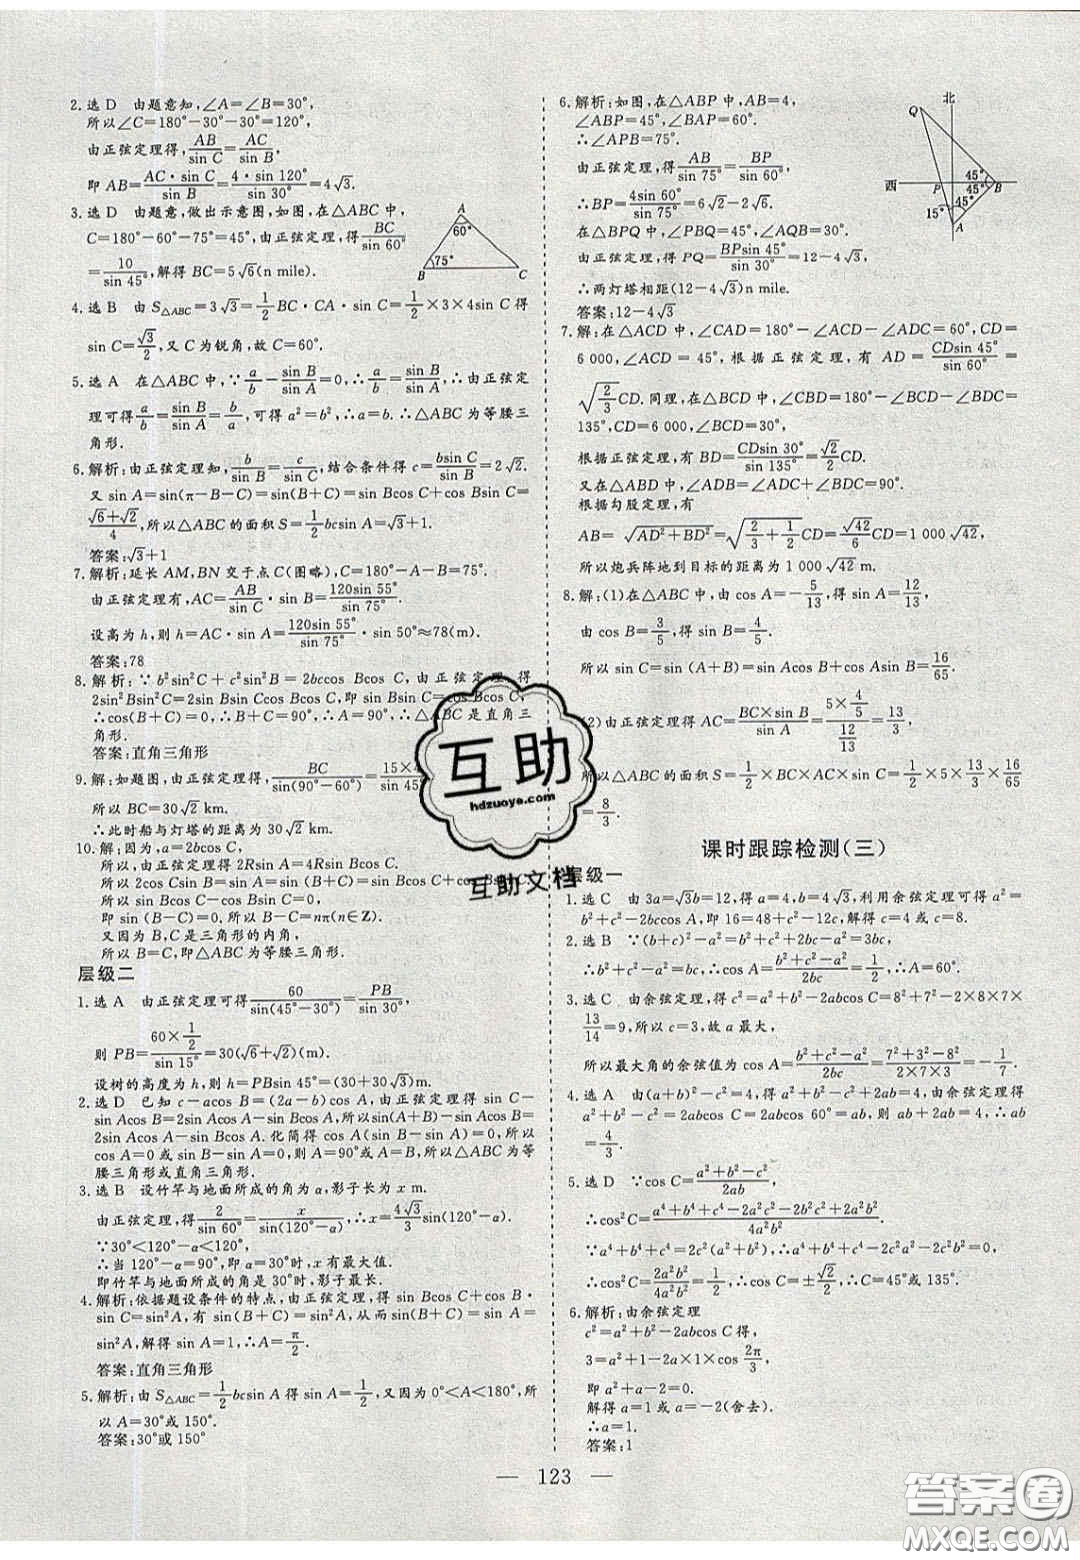 2.选D 由题意知,∠A=∠B=30°,
所以∠C=180°-30°-30°=120°,
由正弦定理得,AB/sin C=AC/sin B,
即 AB=AC·sin C/sin B=4·sin 120°/sin 30°=4√3.
3.选D 由题意,做出示意图,如图,在△ABC中,
C=180°-60°-75°=45°,由正弦定理得BC/sin 60°
=10/sin 45°,解得 BC=5√6(n mile).
A
60°
75°
B
C
4.选B 由 S△ABC=3√3=1/2 BC·CA·sin C=1/2×3×4sin C得
sin C=√3/2,又C为锐角,故C=60°.
5.选A 在△ABC中,∵a/b-sin B/sin A=0,∴a/b=sin B/sin A.由正弦定
理可得a/b=sin B/sin A=b/a,可得a²=b²,∴a=b.∴△ABC为等腰三
角形.
6.解析:由正弦定理知,b/sin B=c/sin C,结合条件得c=bsin C/sin B=2√2.
又 sin A=sin(π-B-C)=sin(B+C)=sin Bcos C+cos Bsin C=
(√6+√2)/4,所以△ABC的面积S=1/2 bcsin A=√3+1.
答案:√3+1
7.解析:延长AM,BN交于点C(图略),C=180°-A-B=75°.
由正弦定理有,AC=AB/sin C·sin B=120sin 55°/sin 75°.
设高为h,则h=AC·sin A=120sin 55°/sin 75°·sin 50°≈78(m).
答案:78
8.解析:∵b²sin²C+c²sin²B=2bccos Bcos C,由正弦定理,得
2sin²Bsin²C=2sin Bsin Ccos Bcos C,即 sin Bsin C=cos Bcos C,
∴cos(B+C)=0,∴B+C=90°,A=90°,∴△ABC是直角三
角形.
答案:直角三角形
9.解:如题图,由正弦定理得,BC/sin(90°-60°)=15×4/sin 45°
所以 BC=30√2 km.
∴此时船与灯塔的距离为30√2 km.
10.解:因为,a=2bcos C,
所以,由正弦定理得2Rsin A=4Rsin Bcos C.
所以 2cos Csin B=sin A=sin(B+C)=sin Bcos C+cos Bsin C.
所以 sin Bcos C-cos Bsin C=0,
即 sin(B-C)=0,所以B-C=nπ(n∈Z).
又因为B,C是三角形的内角,
所以B=C,即△ABC为等腰三角形.
层级二
1.选A 由正弦定理可得60/sin(45°-30°)=PB/sin 30°,
则 PB=(60×1/2)/sin 15°=30(√6+√2)(m).
设树的高度为h,则h=PBsin 45°=(30+30√3)m.
2.选D 已知c-acos B=(2a-b)cos A,由正弦定理得 sin C-
sin Acos B=2sin Acos A-sin Bcos A,所以sin(A+B)-sin Acos B=
2sin Acos A-sin Bcos A.化简得cos A(sin B-sin A)=0,所以
cos A=0或sin B-sin A=0,则A=90°或A=B,故△ABC为等
腰三角形或直角三角形.
3.选B 设竹竿与地面所成的角为α,影子长为x m.
由正弦定理,得2/sin 60°=x/sin(120°-α),∴x=4√3/3 sin(120°-α).
∵30°<120°-α<120°,
∴当120°-α=90°,即α=30°时,x有最大值.
即竹竿与地面所成的角是30°时,影子最长.
4.解析:依据题设条件的特点,由正弦定理,得 sin Bcos C+cos B·
sin C=sin²A,有 sin(B+C)=sin²A,从而sin(B+C)=sin A=
sin²A,解得 sin A=1,∴A=π/2.
答案:直角三角形
5.解析:由 S△ABC=1/2 bcsin A得 sin A=1/2,又因为0°<A<180°,所
以 A=30°或150°.
答案:30°或150°
6.解析:如图,在△ABP中,AB=4,
∠ABP=45°,∠BAP=60°.
∴∠APB=75°.
由正弦定理,得AB/sin 75°=BP/sin 60°.
∴BP=4sin 60°/sin 75°=6√2-2√6.
在△BPQ中,∠PBQ=45°,∠AQB=30°.
由正弦定理,得PQ=BPsin 45°/sin 30°=12-4√3,
∴两灯塔相距(12-4√3)n mile.
答案:12-4√3
北
Q
西
P
45°
45°
B
15°
A
7.解:在△ACD中,∠CAD=180°-∠ACD-∠ADC=60°,CD=
6 000,∠ACD=45°,根据正弦定理,有 AD=CDsin 45°/sin 60°=
√(2/3)CD.同理,在△BCD中,∠CBD=180°-∠BCD-∠BDC=
135°,CD=6 000,∠BCD=30°,
根据正弦定理,有 BD=CDsin 30°/sin 135°=√2/2 CD.
又在△ABD中,∠ADB=∠ADC+∠BDC=90°.
根据勾股定理,有
AB=√(AD²+BD²)=√(2/3+1/2)CD=√42/6 CD=1 000√42,
所以炮兵阵地到目标的距离为1 000√42 m.
8.解:(1)在△ABC中,由cos A=-5/13,得 sin A=12/13,
由 cos B=3/5,得 sin B=4/5.
所以 sin C=sin(A+B)=sin Acos B+cos Asin B=16/65.
(2)由正弦定理得AC=BC×sin B/sin A=(5×4/5)/(12/13)=13/3,
所以△ABC的面积S=1/2×BC×AC×sin C=1/2×5×13/3×16/65
=8/3.
课时跟踪检测(三)
层级一
1.选C 由3a=√3b=12,得a=4,b=4√3,利用余弦定理可得a²=
b²+c²-2bccos A,即16=48+c²-12c,解得c=4或c=8.
2.选B ∵(b+c)²-a²=b²+c²+2bc-a²=3bc,
∴b²+c²-a²=bc,∴cos A=(b²+c²-a²)/2bc=1/2,∴A=60°.
3.选C 由余弦定理,得c²=a²+b²-2abcos C=8²+7²-2×8×7×
13/14=9,所以c=3,故a最大,
所以最大角的余弦值为cos A=(b²+c²-a²)/2bc=(7²+3²-8²)/(2×7×3)=-1/7.
4.选A 由(a+b)²-c²=a²+b²-c²+2ab=4,由余弦定理得
a²+b²-c²=2abcos C=2abcos 60°=ab,则ab+2ab=4,∴ab
=4/3.
5.选D ∵cos C=(a²+b²-c²)/2ab,
∴cos²C=(a⁴+b⁴+c⁴-2a²c²-2b²c²+2a²b²)/4a²b²
∵a⁴+b⁴+c⁴=2c²(a²+b²),∴a⁴+b⁴+c⁴-2a²c²-2b²c²=0,
∴cos²C=2a²b²/4a²b²=1/2,∴cos C=±√2/2,∴C=45°或135°.
6.解析:由余弦定理
c²=a²+b²-2abcos C得,
3=a²+1-2a×1×cos 2π/3,
即a²+a-2=0.
解得a=1或a=-2(舍去).
∴a=1.
答案:1
123
互助
hdzuoye.com
互助文档
答案圈
MXQE.COM